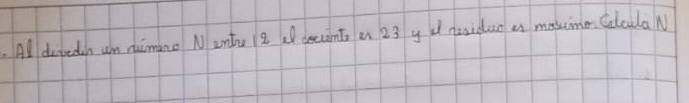 . Al dividir un número N entre 12 el cociente es 23 y el residuo es maximo. Calcula N